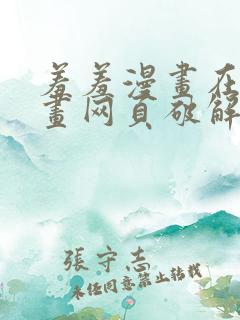 羞羞漫畫在
畫网頁破解
張守志
未经同意禁止转载